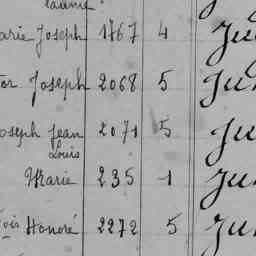 arie Joseph 1767 4 Ju
or Joseph 2068 5 Jun
oseph Jean 2071 5 Ju
Louis
Marie 235 1 Jun
ois Honoré 2272 5 Jun